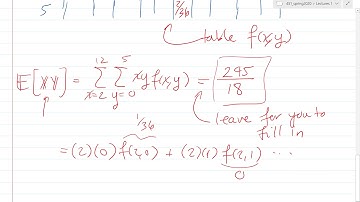 431_spring2020 > Lectures 1
5 2/36
table f(x,y)
E[XY] = Σ Σ xy f(x,y) = 245/18
12 5
x=2 y=0
leave for you to
fill in
1/36
= (2)(0) f(2,0) + (2)(1) f(2,1) ...
0